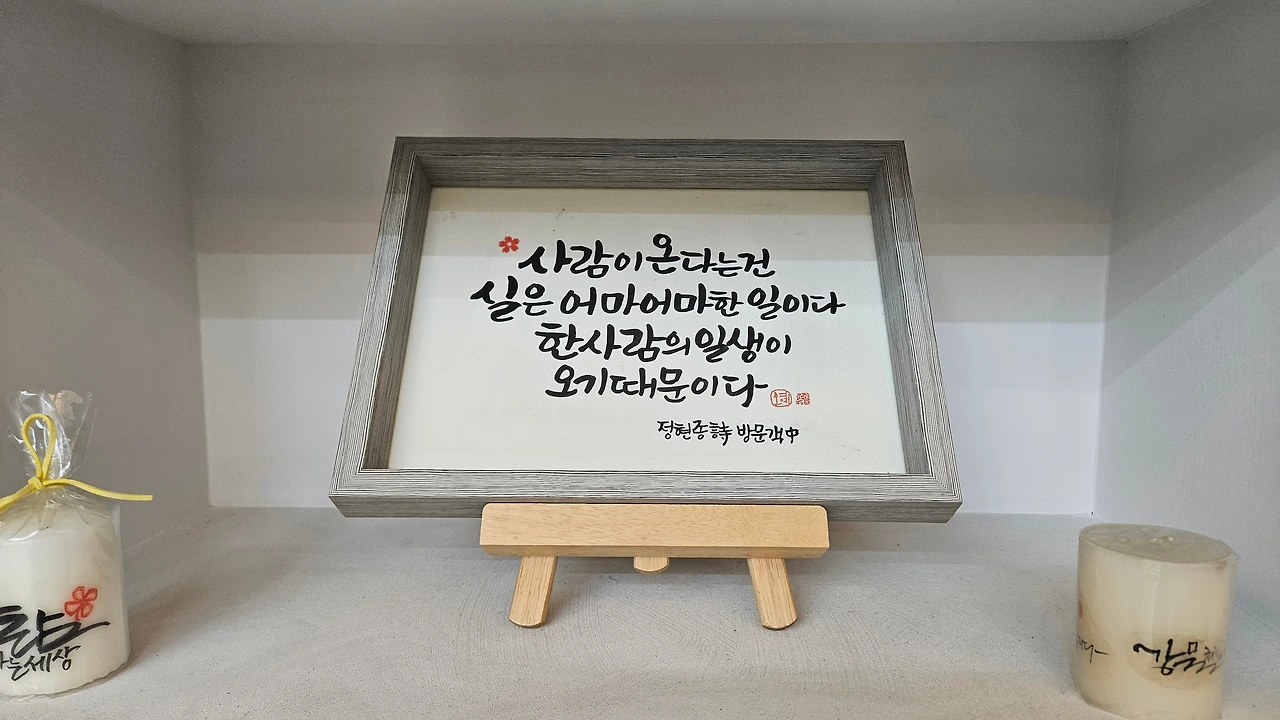 사람이 온다는건
실은 어마어마한 일이다
한사람의 일생이
오기때문이다
정현종 詩 방문객 中
는세상